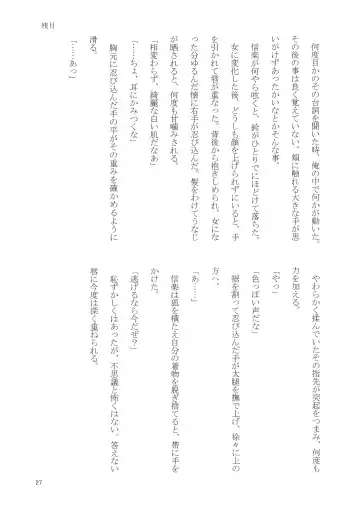 残月
何度目かのその台詞を聞いた時、俺の中で何かが動いた。
その後の事は良く覚えていない。頬に触れる大きな手が思
いがけずあったかいなとかそんな事。
信楽が何やら呟くと、絵がひとりでにほどけて落ちた。
女に変化した後、どうしても顔を上げられずにいると、手
を引かれて姿が重なった。背後から抱きしめられ、女にな
った分ゆるんだ懐に右手が忍び込んだ。髪をわけてうなじ
が晒されると、何度も甘噛みされる。
「相変わらず、綺麗な白い肌だなあ」
「……ちょ、耳にかみつくな」
胸元に忍び込んだ手の平がその重みを確かめるように
滑る。
「……あっ」
やわらかく揉んでいたその指先が突起をつまみ、何度も
力を加える。
「やっ」
「色っぽい声だな」
裾を割って忍び込んだ手が太腿を撫で上げ、徐々に上の
方へ。
「あ……」
信楽は狐を横たえ自分の着物を脱ぎ捨てると、帯に手を
かけた。
「逃げるなら今だぜ?」
恥ずかしくはあったが、不思議と怖くはない。答えない
唇に今度は深く重ねられる。
27